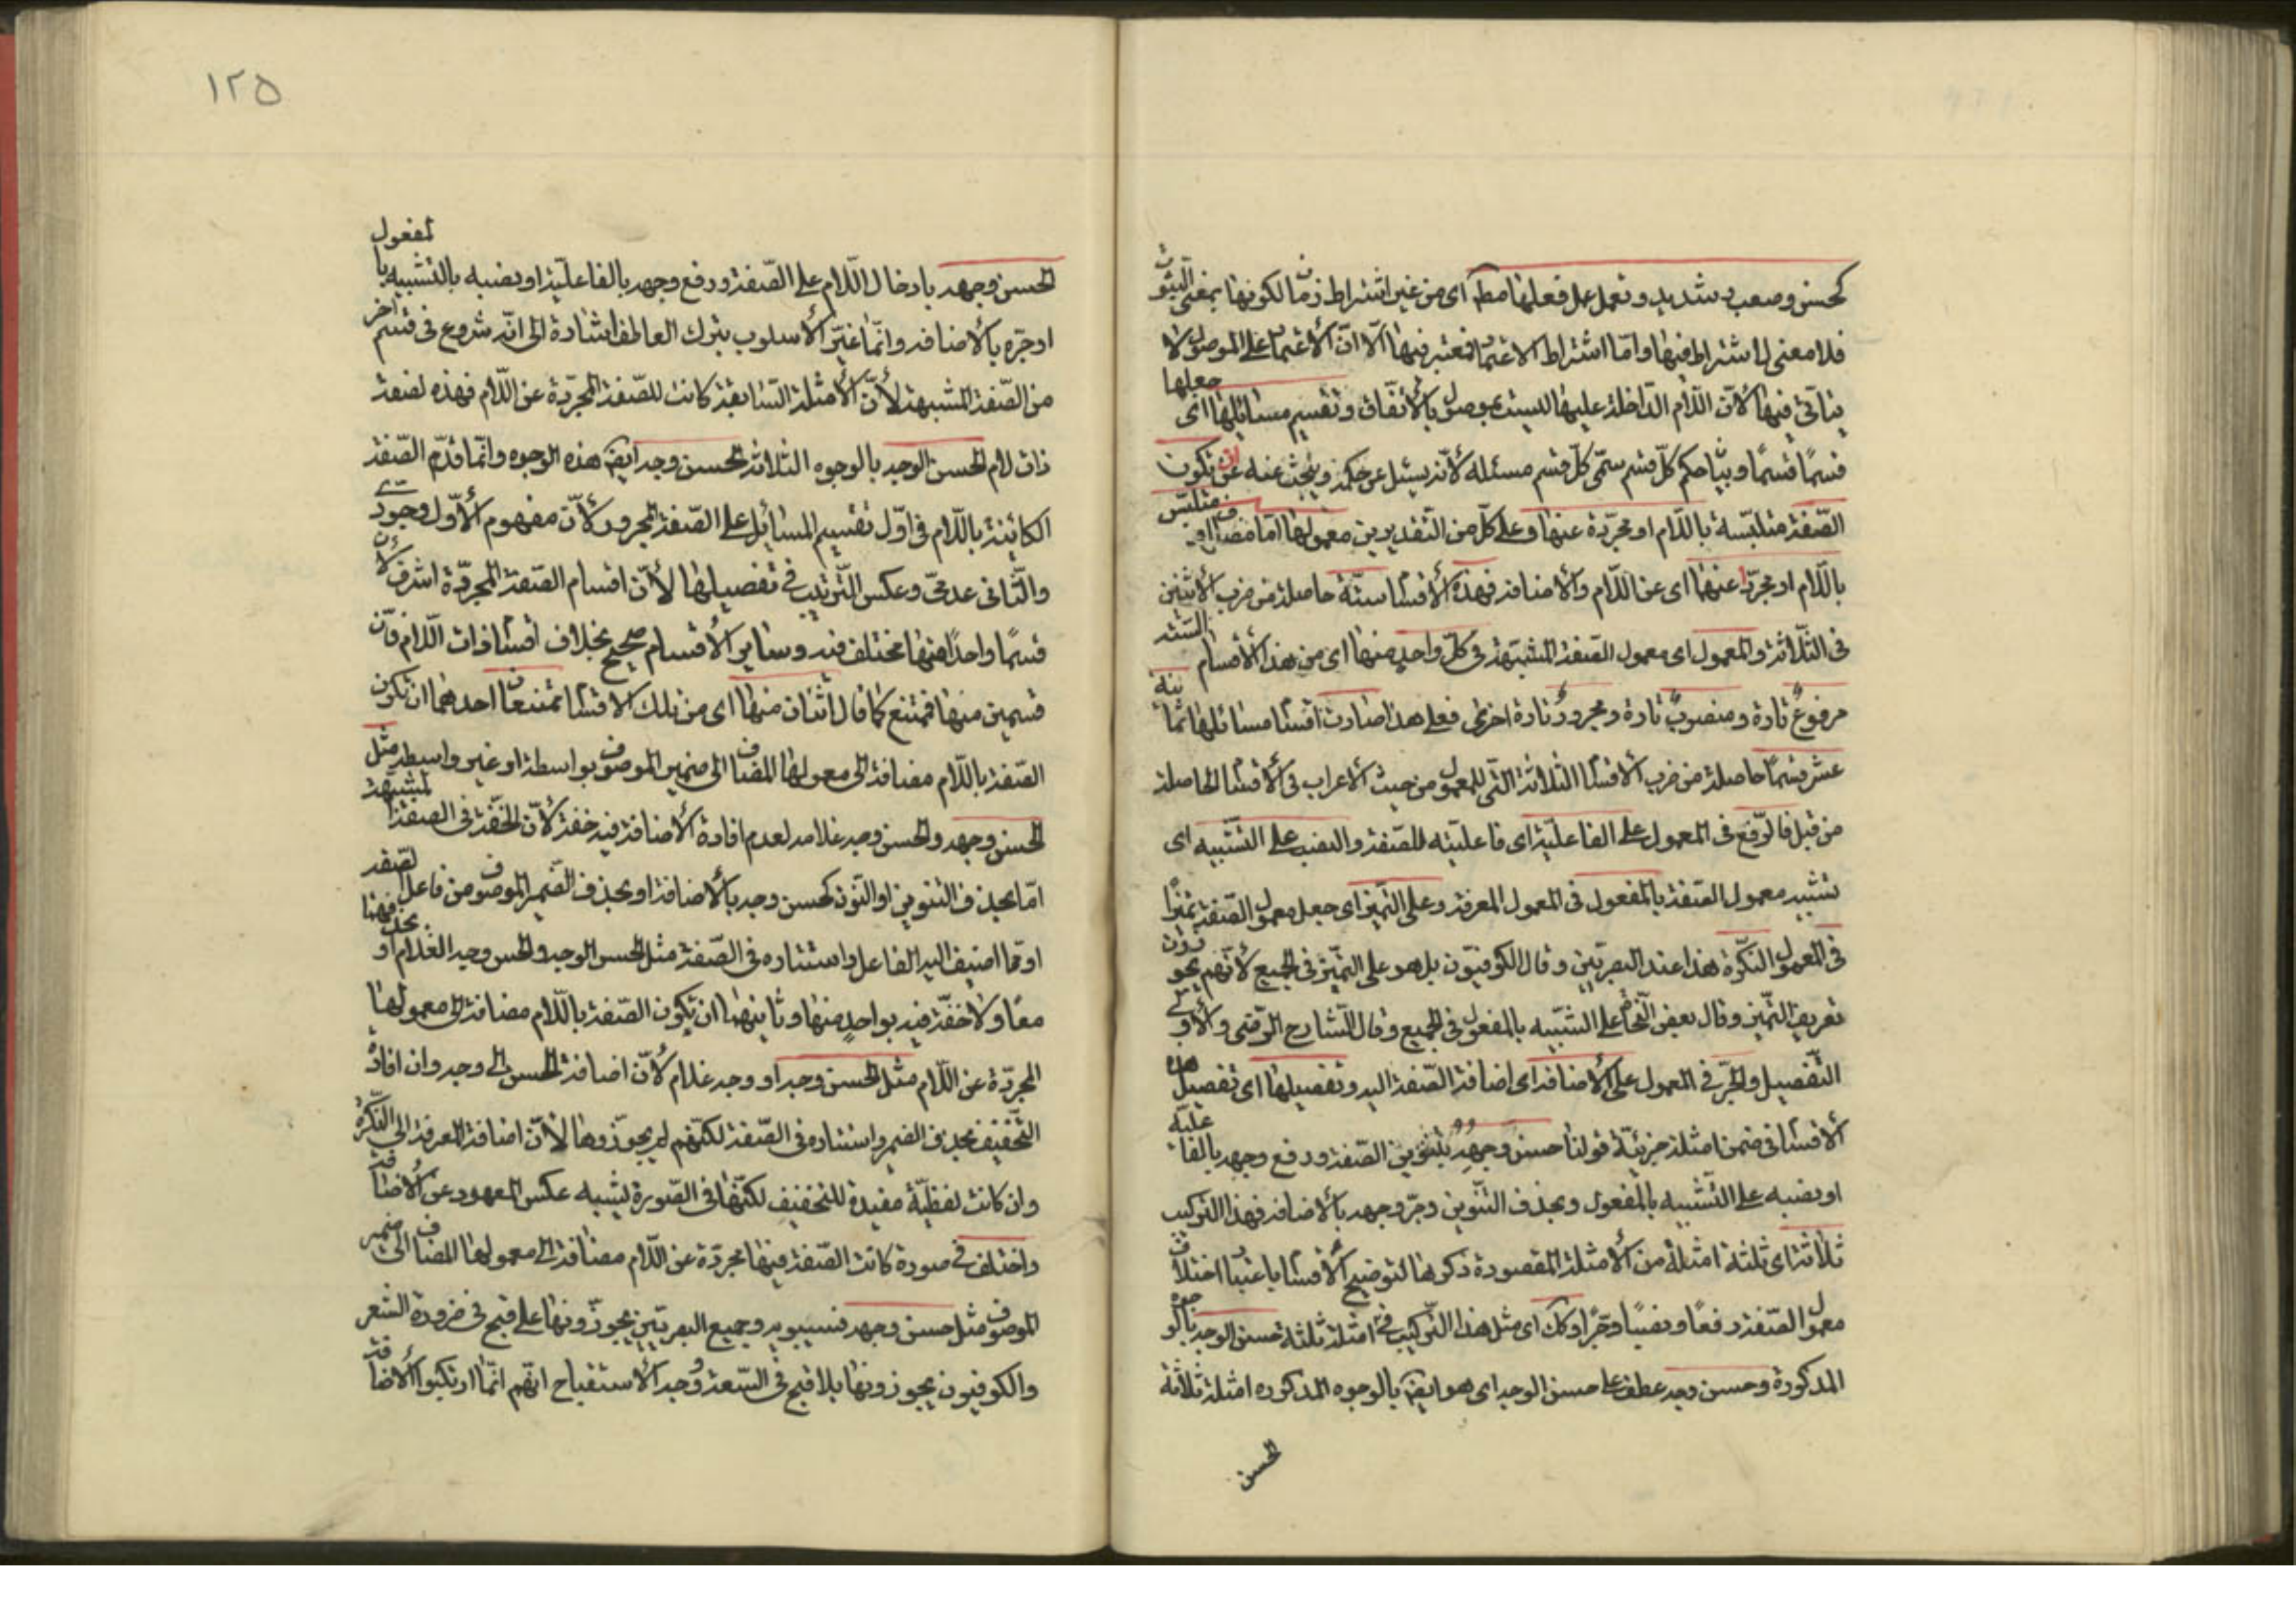 كحسن وصعب وشديد وتعمل عمل فعلها مطلقا اى من غير اشتراط زمان لكونها بمعنى الثبوت
فلا معنى لاشتراطه فيها واما اشتراط الاعتماد فمعتبر فيها الا ان الاعتماد على الموصول لا
يتاتى فيها لان اللام الداخلة عليها ليست بموصول بالاتفاق وتقسيم مسائلها اى جعلها
قسما قسما وبيان حكم كل قسم سمى كل قسم مسئلة لانه يسئل عن حكمه ويبحث عنه ان تكون
الصفة متلبسة باللام او مجردة عنها وعلى كل من التقديرين معمولها اما مضاف او متلبس
باللام او مجردا عنهما اى عن اللام والاضافة فهذه الاقسام ستة حاصلة من ضرب الاثنين
فى الثلاثة والمعمول اى معمول الصفة المشبهة فى كل واحد منها اى من هذه الاقسام الستة
مرفوع تارة ومنصوب تارة ومجرور تارة اخرى فعلى هذا صارت اقسام مسائلها ثمانية
عشر قسما حاصلة من ضرب الاقسام الثلاثة التى للمعمول من حيث الاعراب فى الاقسام الحاصلة
من قبل فالرفع فى المعمول على الفاعلية اى فاعليته للصفة والنصب على التشبيه اى
تشبيه معمول الصفة بالمفعول فى المعمول المعرفة وعلى التميز اى جعل معمول الصفة تميزا
فى المعمول النكرة هذا عند البصريين وقال الكوفيون بل هو على التميز فى الجميع لانهم يجوزون
تعريف التميز وقال بعض النحاة على التشبيه بالمفعول فى الجميع وقال الشارح الرضى والاولى
التفصيل والجر فى المعمول على الاضافة اى اضافة الصفة اليه وتفصيلها اى تفصيل هذه
الاقسام فى ضمن امثلة جزئية قولنا حسن وجهه بتنوين الصفة ورفع وجهه بالفاعلية
او نصبه على التشبيه بالمفعول وبحذف التنوين وجر وجهه بالاضافة فهذا التركيب
ثلاثة اى ثلثة امثلة من الامثلة المقصودة ذكرها لتوضيح الاقسام باعتبار اختلاف
معمول الصفة رفعا ونصبا وجرا وكك اى مثل هذا التركيب فى امثلة ثلثة حسن الوجه بالوجوه
المذكورة وحسن وجه عطف على حسن الوجه اى هو ايضا بالوجوه المذكوره امثلة ثلاثة
الحسن
١٢٥
الحسن وجهه بادخال اللام على الصفة ورفع وجهه بالفاعلية او نصبه بالتشبيه بالمفعول
او جره بالاضافة وانما غير الاسلوب بترك العاطف اشارة الى انه شروع فى قسم آخر
من الصفة المشبهة لان الامثلة السابقة كانت للصفة المجردة عن اللام فهذه لصفة
ذات لام الحسن الوجه بالوجوه الثلاثة الحسن وجه ايضا هذه الوجوه وانما قدم الصفة
الكائنة باللام فى اول تقسيم المسائل على الصفة المجرور لان مفهوم الاول وجودى
والثانى عدمى وعكس الترتيب فى تفصيلها لان اقسام الصفة المجردة اشرف لان
قسما واحدا منها مختلف فيه وسائر الاقسام صحيح بخلاف اقسام ذات اللام فان
قسمين منها ممتنع كما قال اثنان منها اى من تلك الاقسام ممتنعان احدهما ان تكون
الصفة باللام مضافة الى معمولها المضاف الى ضمير الموصوف بواسطة او غير واسطة مثل
الحسن وجهه والحسن وجه غلامه لعدم افادة الاضافة فيه خفة لان الخفة فى الصفة المشبهة
اما بحذف التنوين او النون كحسن وجه بالاضافة او بحذف الضمير الموصوف من فاعل الصفة
او مما اضيف اليه الفاعل واستتاره فى الصفة مثل الحسن الوجه والحسن وجه الغلام او بحذفهما
معا ولا خفة فيه بواحد منها وثانيهما ان تكون الصفة باللام مضافة الى معمولها
المجردة عن اللام مثل الحسن وجه او وجه غلام لان اضافة الحسن الى وجه وان افاد
التخفيف بحذف الضمير واستتاره فى الصفة لكنهم لم يجوزوها لان اضافة المعرفة الى النكرة
وان كانت لفظية مفيدة للتخفيف لكنها فى الصورة يشبه عكس المعهود عن الاضافة
واختلف فى صورة كانت الصفة فيها مجردة عن اللام مضافة الى معمولها المضاف الى ضمير
الموصوف مثل حسن وجهه فسيبويه وجميع البصريين يجوزونها على قبح فى ضرورة الشعر
والكوفيون يجوزونها بلا قبح فى السعة وجه الاستقباح انهم انما ارتكبوا الاضافة